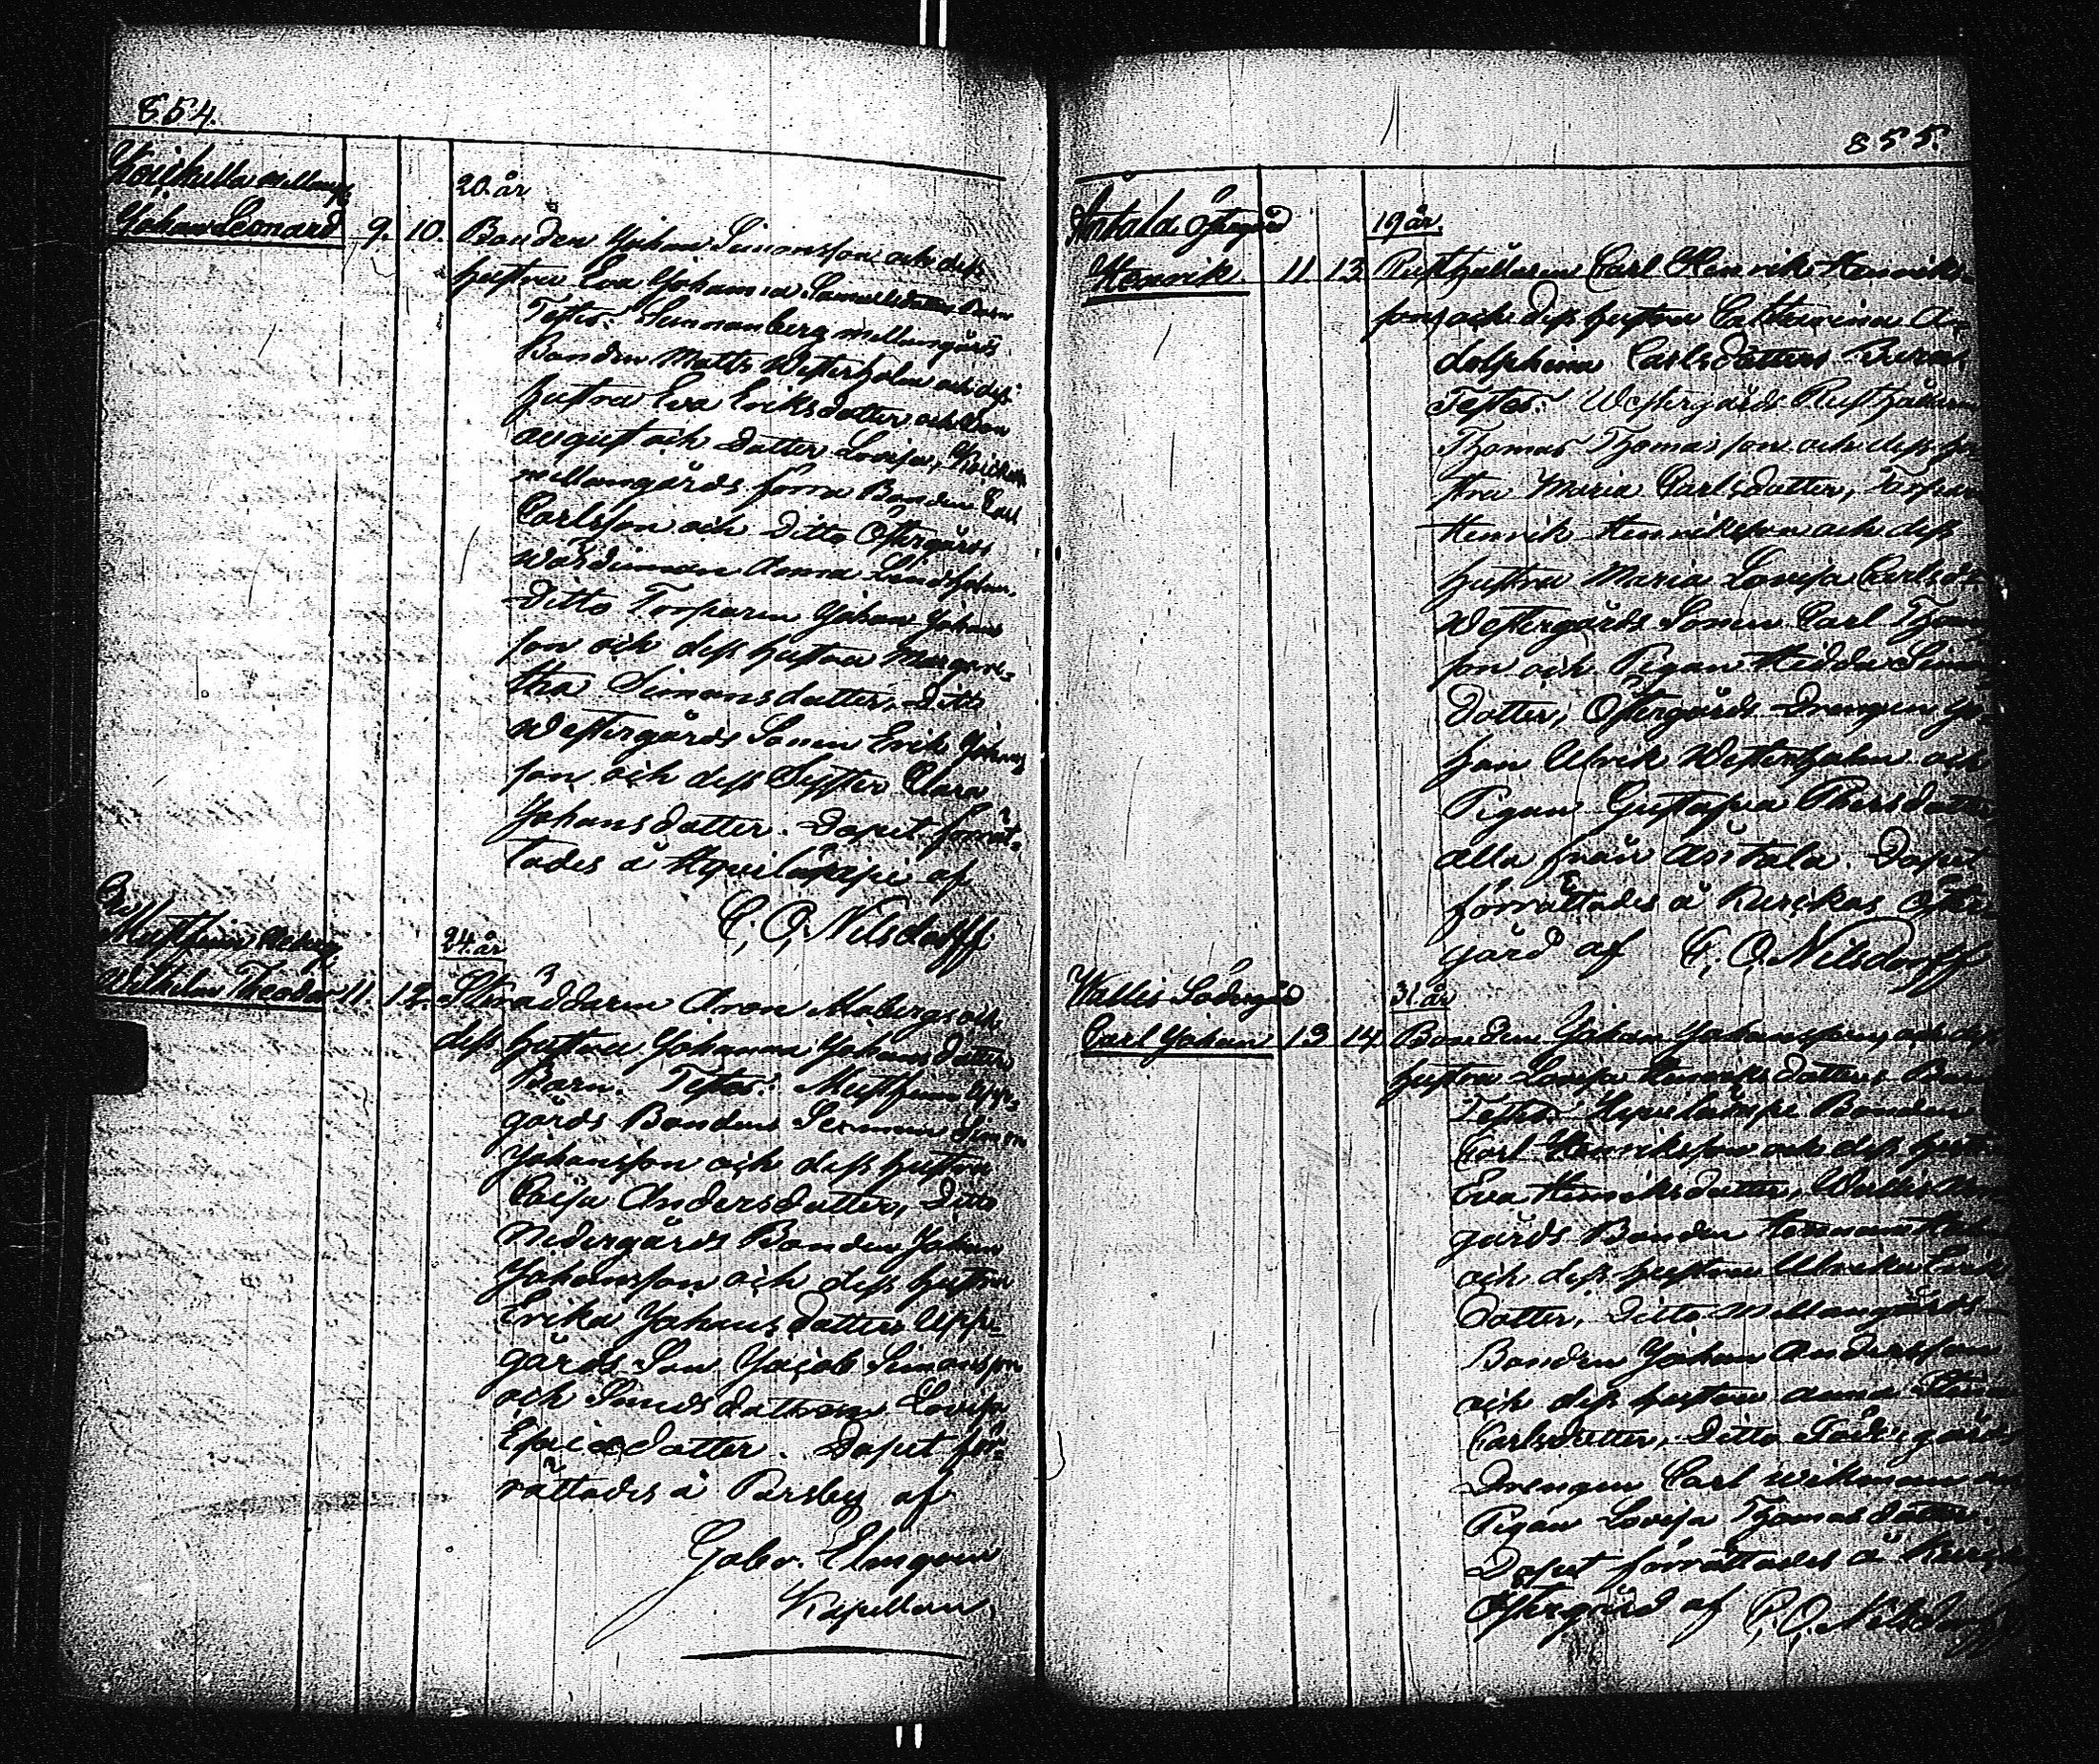 854.
Mellangd
Johan Leonard 9. 10.
20. år
Bonden Johan Simonsson och dess
hustru Eva Johanna Samuelsdotters Barn
Testes: Sunnanberg mellangårds
Bonden Matts Westerholm och dess
hustru Eva Eriksdotter och Son
august och Dotter Lovisa,
mellangårds förra Bonden Carl
Carlsson och Ditto Östergårds
Wärdinnan Anna Lindholm,
Ditto Torparen Johan Johans
son och dess hustru Margare-
tha Simonsdotter, Ditto
Westergårds Sonen Erik Johans
son och dess Syster Clara
Johansdotter. Dopet förrät-
tades å Hyvilämpi af
C. O. Nilsdorff
Wilhelm Theodor 11. 12.
24. år
Skräddaren Aron Moberg och
dess hustru Johanna Johansdotters
Barn. Testes: Upp-
gårds Bonden Simon
Johansson och dess hustru
Caisa Andersdotter, Ditto
Nedergårds Bonden Johan
Johansson och dess hustru
Erika Johansdotter, Upp-
gårds Son Jacob Simonsson
och Lovisa
Esaiædotter. Dopet för-
rättades å Persby af
Gabr. Elmgren
Kapellan.
855.
Östergård
Henrik. 11. 13.
19 år.
Rusthållaren Carl Henrik Henriks
son, och dess hustru Catharina A-
dolphina Carlsdotters Barn,
Testes: Westergårds Rusthållaren
Thomas Thomasson och dess hu
stru Maria Carlsdotter, Torparen
Henrik Henriksson och dess
hustru Maria Lovisa Carlsdr
Westergårds Sonen Carl Thom
son och Pigan Hedda Simons
dotter, Östergårds Drengen Jo-
han Ulrik Westerholm och
Pigan Gustafva Phersdotter
alla från Antala. Dopet
förrättades å Öster
gård af C. O. Nilsdorff
Wallis Södergård
Carl Johan 13 14.
31 år
Bonden Johan Johansson, och dess
hustru Lovisa Henriksdotters Barn
Testes. Hyvilämpi Bonden
Carl Henriksson och dess hustru
Eva Henriksdotter, Wallis
gårds Bonden Hermann
och dess hustru Ulrika Eriks
dotter, Ditto Mellangårds
Bonden Johan Andersson
och dess hustru anna
Carlsdotter, Ditto Södergårds
Drengen Carl Wikman
Pigan Lovisa Thomasdotter.
Dopet förrättades å
Östergård af C. O. Nilsdorff